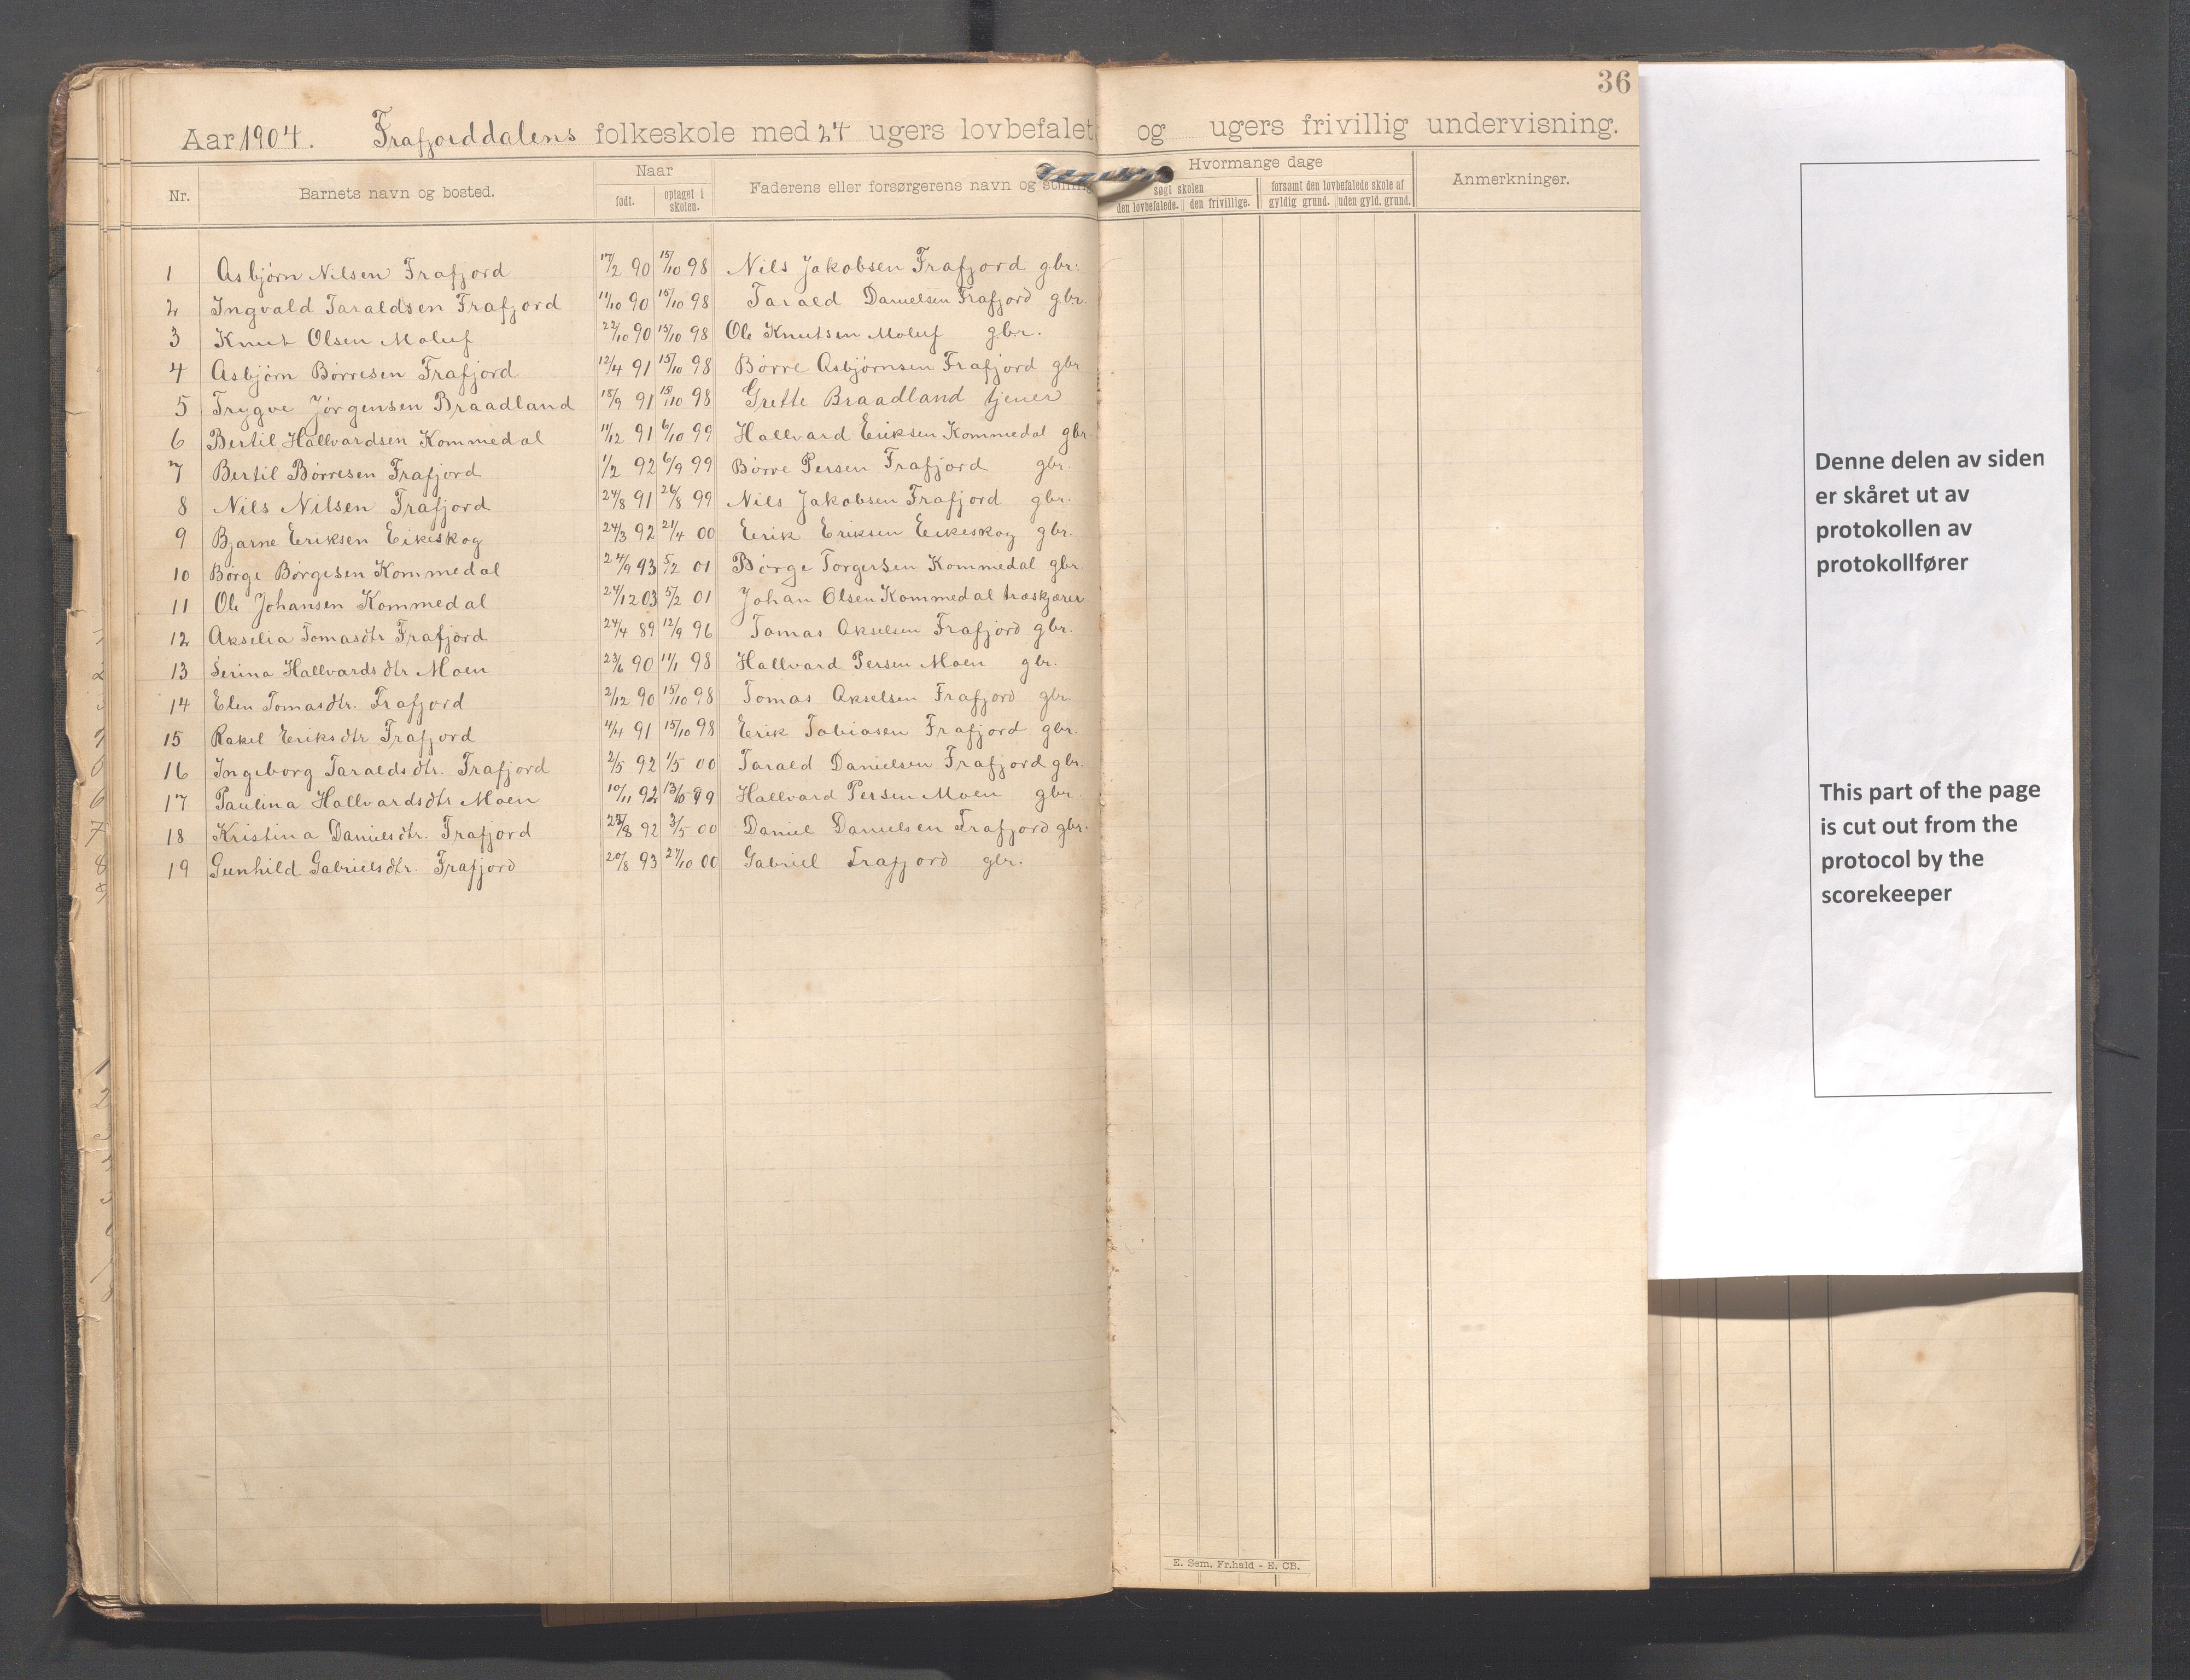 36
Aar 1904. Frafjorddalens folkeskole med 24 ugers lovbefalet og ugers frivillig undervisning.
Nr. Barnets navn og bosted. Naar født. optaget i skolen. Faderens eller forsørgerens navn og stilling Hvormange dage søgt skolen den lovbefalede. den frivillige. forsømt den lovbefalede skole af gyldig grund. uden gyld. grund. Anmerkninger.
1 Asbjörn Nilsen Frafjord 17/2 90 15/10 98 Nils Jakobsen Frafjord gbr.
2 Ingvald Taraldsen Frafjord 11/10 90 15/10 98 Tarald Danielsen Frafjord gbr.
3 Knut Olsen Moluf 22/10 90 15/10 98 Ole Knutsen Moluf gbr.
4 Asbjörn Börresen Frafjord 12/4 91 15/10 98 Börre Asbjörnsen Frafjord gbr
5 Trygve Jörgensen Braadland 15/9 91 15/10 98 Grette Braadland tjener
6 Bertil Hallvardsen Kommedal 11/12 91 6/10 99 Hallvard Eriksen Kommedal gbr.
7 Bertil Börresen Frafjord 1/2 92 6/9 99 Börre Persen Frafjord gbr.
8 Nils Nilsen Frafjord 24/8 91 26/8 99 Nils Jakobsen Frafjord gbr.
9 Bjarne Eriksen Eikeskog 24/3 92 21/4 00 Eerik Eriksen Eikeskog gbr.
10 Börge Börgesen Kommedal 24/9 93 5/2 01 Börge Torgersen Kommedal gbr
11 Ole Johansen Kommedal 24/12 03 5/2 01 Johan Olsen Kommedal træskjærer
12 Akselia Tomasdtr Frafjord 24/4 89 12/9 96 Tomas Akselsen Frafjord gbr.
13 Serina Hallvardsdtr Moen 23/6 90 11/1 98 Hallvard Persen Moen gbr.
14 Elen Tomasdtr. Frafjord 2/12 90 15/10 98 Tomas Akselsen Frafjord gbr.
15 Rakel Eriksdtr Frafjord 4/4 91 15/10 98 Erik Tobiasen Frafjord gbr.
16 Ingeborg Taraldsdtr. Frafjord 2/5 92 1/5 00 Tarald Danielsen Frafjord gbr.
17 Paulina Hallvardsdtr Moen 10/11 92 13/10 99 Hallvard Persen Moen gbr.
18 Kristina Danielsdtr. Frafjord 92 3/5 00 Daniel Danielsen Frafjord gbr.
19 Gunhild Gabrielsdtr. Frafjord 20/8 93 27/10 00 Gabriel Frafjord gbr.
E. Sem. Fr.hald - E. CB.
Denne delen av siden
er skåret ut av
protokollen av
protokollfører
This part of the page
is cut out from the
protocol by the
scorekeeper